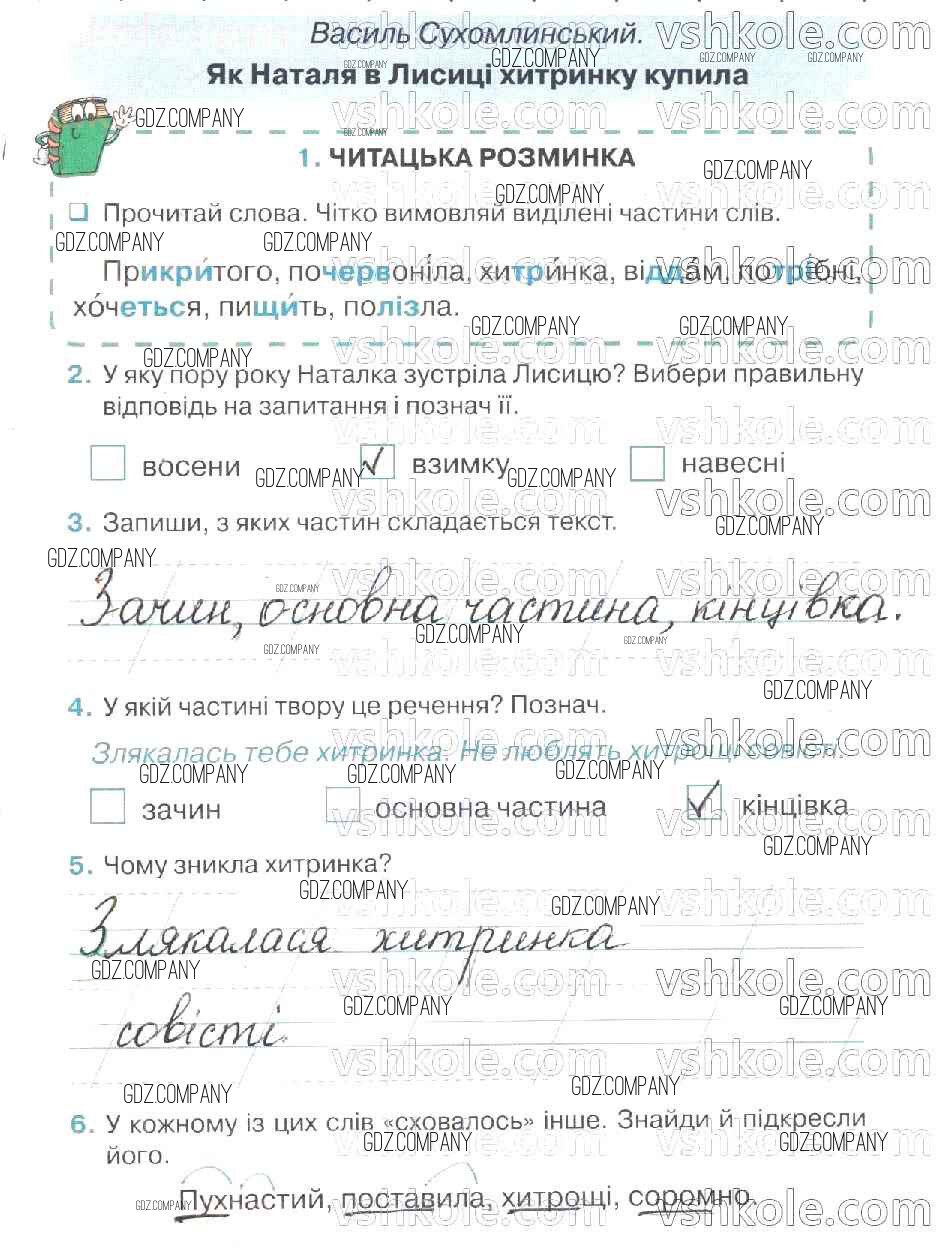 Василь Сухомлинський.
Як Наталя в Лисиці хитринку купила
1. ЧИТАЦЬКА РОЗМИНКА
Прочитай слова. Чітко вимовляй виділені частини слів.
Прикри́того, почервоні́ла, хитри́нка, відда́м, потрі́бні,
хо́четься, пищи́ть, полізла.
2. У яку пору року Наталка зустріла Лисицю? Вибери правильну
відповідь на запитання і познач її.
восени взимку навесні
3. Запиши, з яких частин складається текст.
Зачин, основна частина, кінцівка.
4. У якій частині твору це речення? Познач.
Злякалась тебе хитринка. Не люблять хитрощі совісті.
зачин основна частина кінцівка
5. Чому зникла хитринка?
Злякалася хитринка
совісті.
6. У кожному із цих слів «сховалось» інше. Знайди й підкресли
його.
Пухнастий, поставила, хитрощі, соромно.
vshkole.com
GDZ.COMPANY